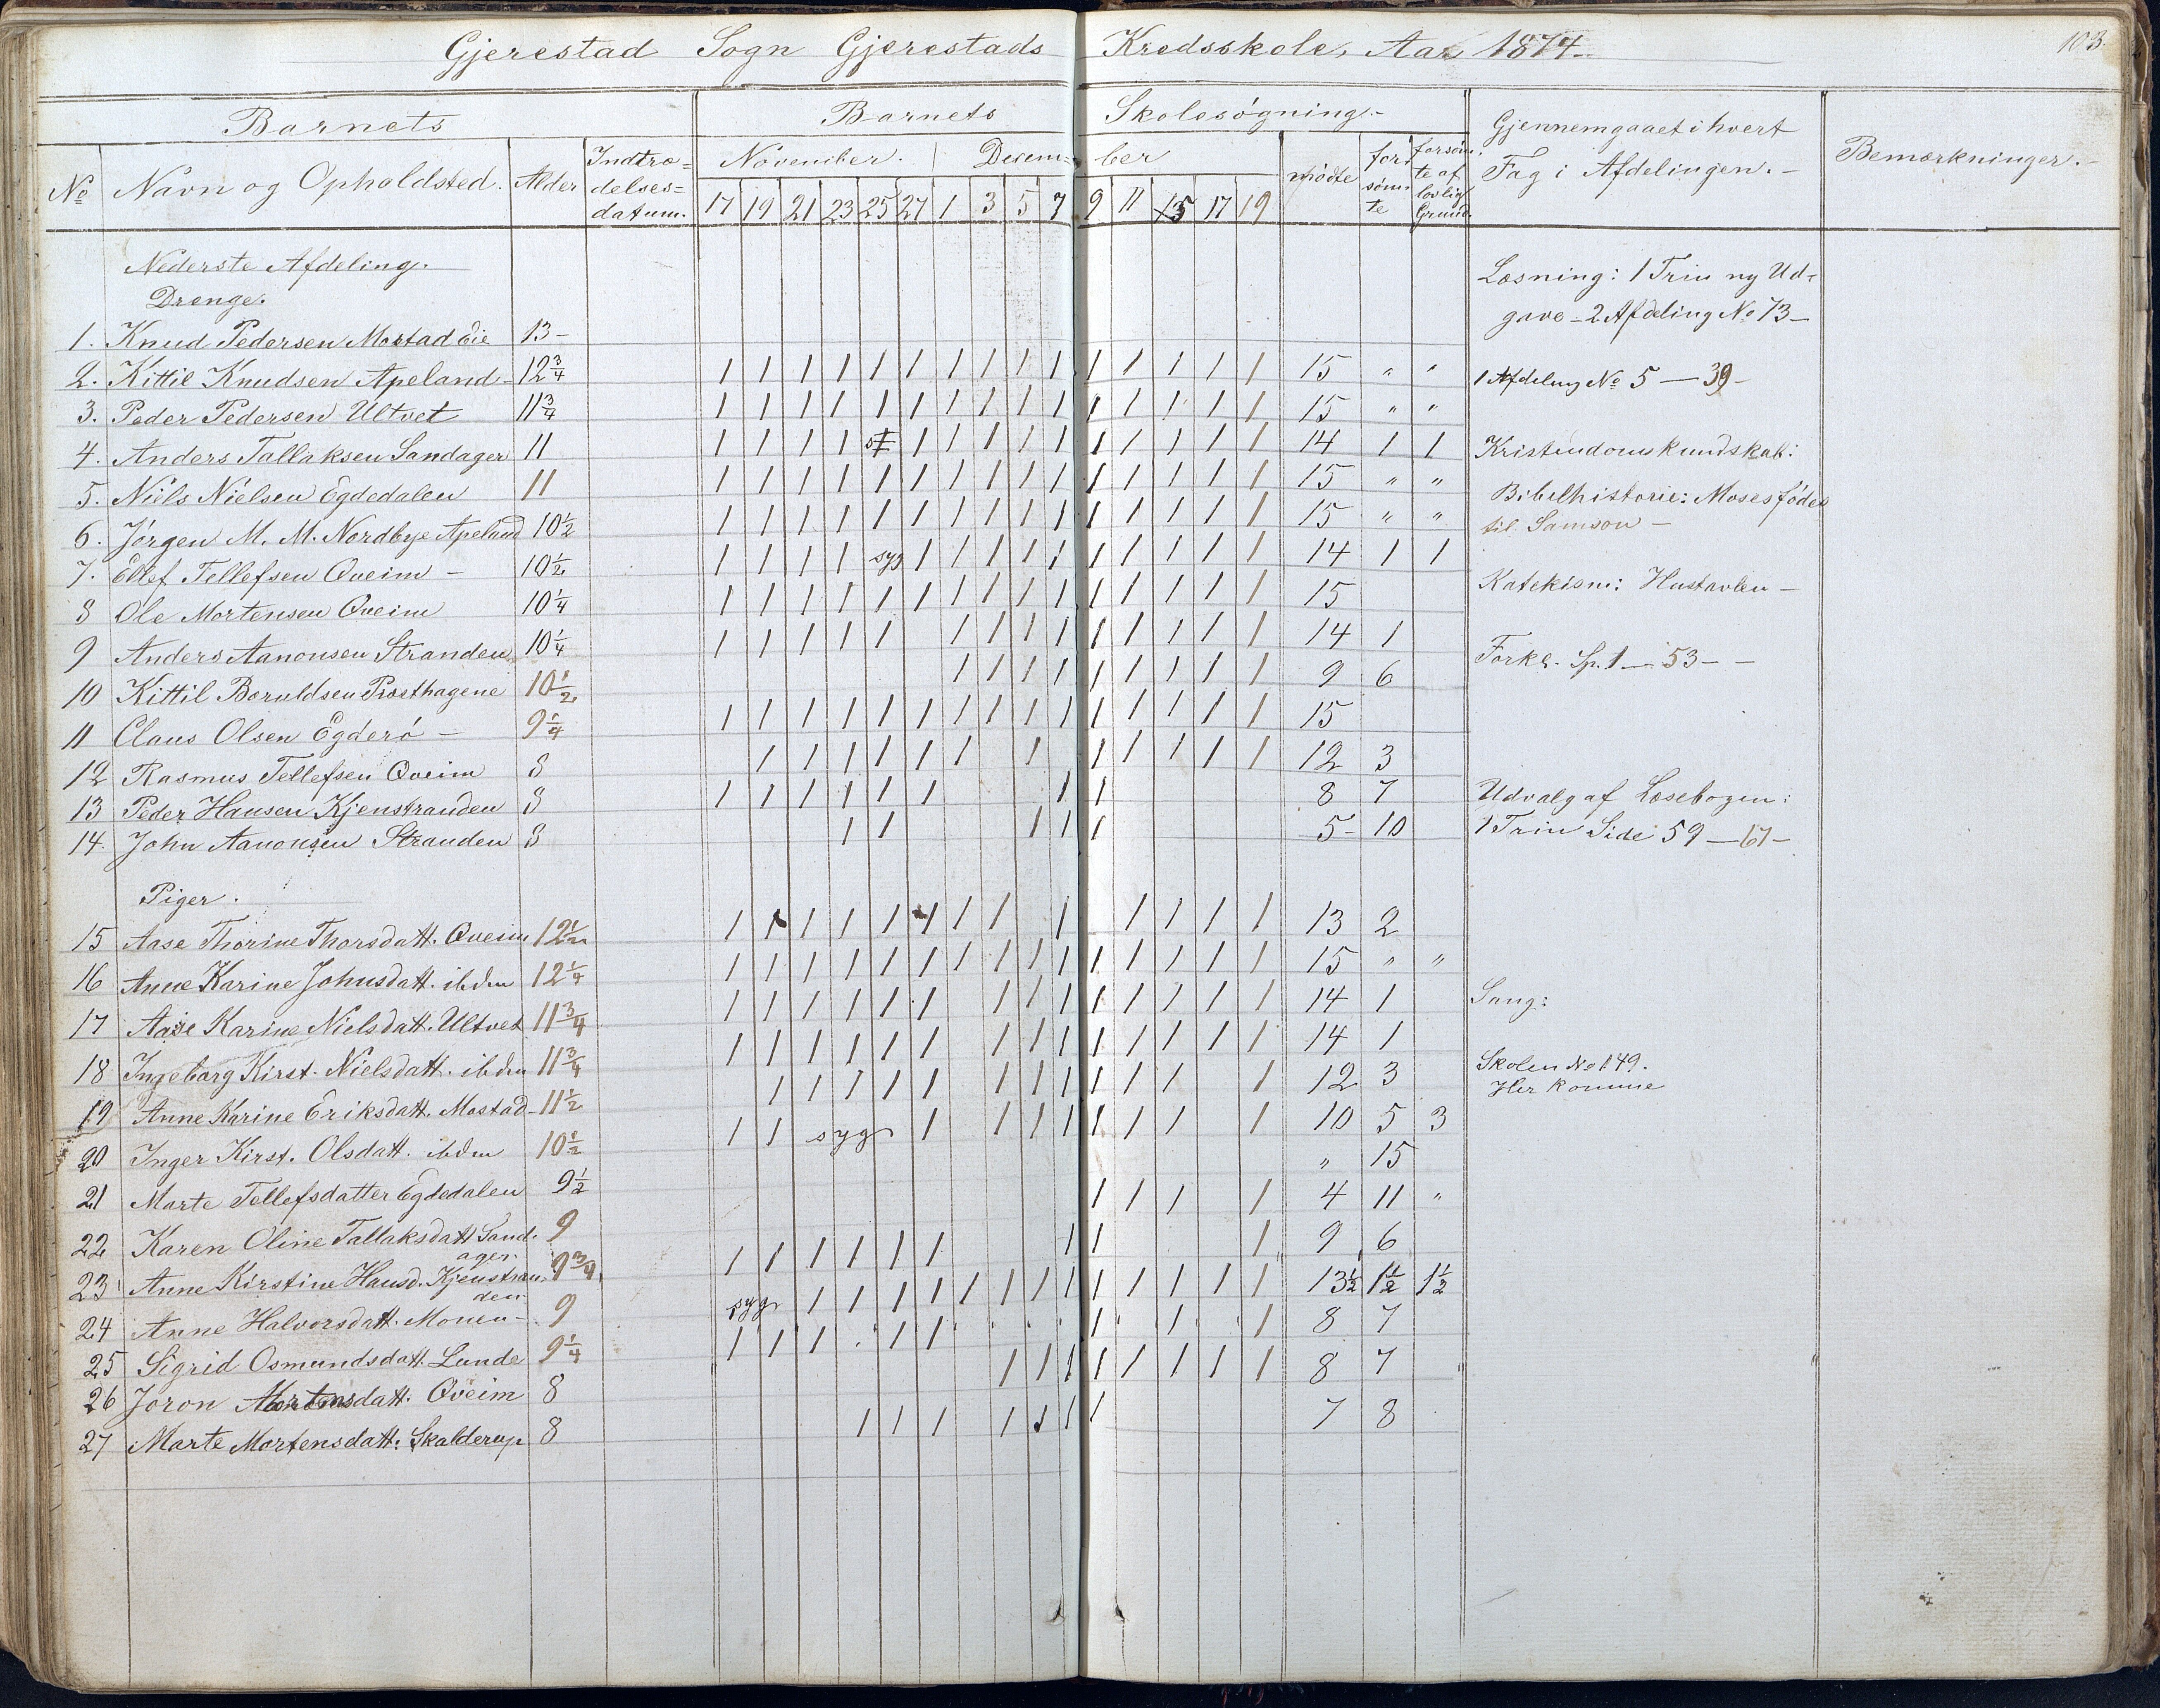 103.
Gjerestad Sogn Gjerestads Kredsskole, Aar 1874.
Barnets
Barnets Skolesøgning.
Gjennemgaaet i hvert
Fag i Afdelingen.
Bemærkninger.
№ Navn og Opholdsted. Alder Indtræ=
delses=
datum.
November. Decem=ber
mødte
for
søm=
te
forsøm
te af
lovlig
Grund.
17 19 21 23 25 27 1 3 5 7 9 11 15 17 19
Nederste Afdeling.
Drenge.
1. Knud Pedersen Mostad Eie 13
2. Kittil Knudsen Apeland 12 3/4 1 1 1 1 1 1 1 1 1 1 1 1 1 1 1 15 " "
3. Peder Pedersen Ultvet 11 3/4 1 1 1 1 1 1 1 1 1 1 1 1 1 1 1 15 " "
4. Anders Tallaksen Sandager 11 1 1 1 1 1 1 1 1 1 1 1 1 1 1 14 1 1
5. Niels Nielsen Egdedalen 11 1 1 1 1 1 1 1 1 1 1 1 1 1 1 1 15 " "
6. Jörgen M. M. Nordbye Apeland 10 1/2 1 1 1 1 1 1 1 1 1 1 1 1 1 1 1 15 " "
7. Ellef Tellefsen Qveim – 10 1/2 1 1 1 1 syg 1 1 1 1 1 1 1 1 1 1 14 1 1
8 Ole Mortensen Qveim 10 1/4 1 1 1 1 1 1 1 1 1 1 1 1 1 1 1 15
9 Anders Aanonsen Stranden 10 1/4 1 1 1 1 1 1 1 1 1 1 1 1 1 1 14 1
10 Kittil Boruldsen Præsthagene 10 1/2 1 1 1 1 1 1 1 1 1 9 6
11 Claus Olsen Egderö – 9 1/4 1 1 1 1 1 1 1 1 1 1 1 1 1 1 1 15
12 Rasmus Tellefsen Qveim 8 1 1 1 1 1 1 1 1 1 1 1 1 12 3
13 Peder Hansen Kjenstranden 8 1 1 1 1 1 1 1 1 8 7
14. John Aanonsen Stranden 8 1 1 1 1 1 5 10
Piger.
15 Aase Thorine Thorsdatt. Qveim 12 1/2 1 1 1 1 1 1 1 1 1 1 1 1 1 13 2
16 Anne Karine Johnsdatt. ibdm 12 1/4 1 1 1 1 1 1 1 1 1 1 1 1 1 1 1 15 " "
17 Aase Karine Nielsdatt. Ultvet 11 3/4 1 1 1 1 1 1 1 1 1 1 1 1 1 1 14 1
18 Ingeborg Kirst. Nielsdatt. ibdm 11 3/4 1 1 1 1 1 1 1 1 1 1 1 1 1 1 14 1
19 Anne Karine Eriksdatt. Mostad 11 1/2 1 1 1 1 1 1 1 1 1 1 1 1 12 3
20 Inger Kirst. Olsdatt. ibdm 10 1/2 1 1 syg 1 1 1 1 1 1 1 1 10 5 3
21 Marte Tellefsdatter Egdedalen 9 1/2 " 15
22 Karen Oline Tallaksdatt Sand.
ager. 9 1 1 1 1 4 11 "
23 Anne Kirstine Hansd. Kjenstran
den 9 3/4 1 1 1 1 1 1 1 1 1 9 6
24 Anne Halvorsdatt. Monen 9 syg 1 1 1 1 1 1 1 1 1 1 1 1 1 13 1/2 1 1/2 1 1/2
25 Sigrid Osmundsdatt. Lunde 9 1/4 1 1 1 1 1 1 1 1 8 7
26 Joron Mortensdatt. Qveim 8 1 1 1 1 1 1 1 1 8 7
27 Marte Mortensdatt. Skalderup 8 1 1 1 1 1 1 1 7 8
Læsning: 1 Trin ny Ud=
gave – 2 Afdeling № 73 –
1 Afdeling № 5 – 39 –
Kristendomskundskab:
Bibelhistorie: Moses födes
til Samson –
Katekism: Hustavlen –
Forkl. Sp. 1 – 53 –
Udvalg af Læsebogen:
1 Trin Side 59 – 61 –
Sang:
Skolen № 149.
Her komme